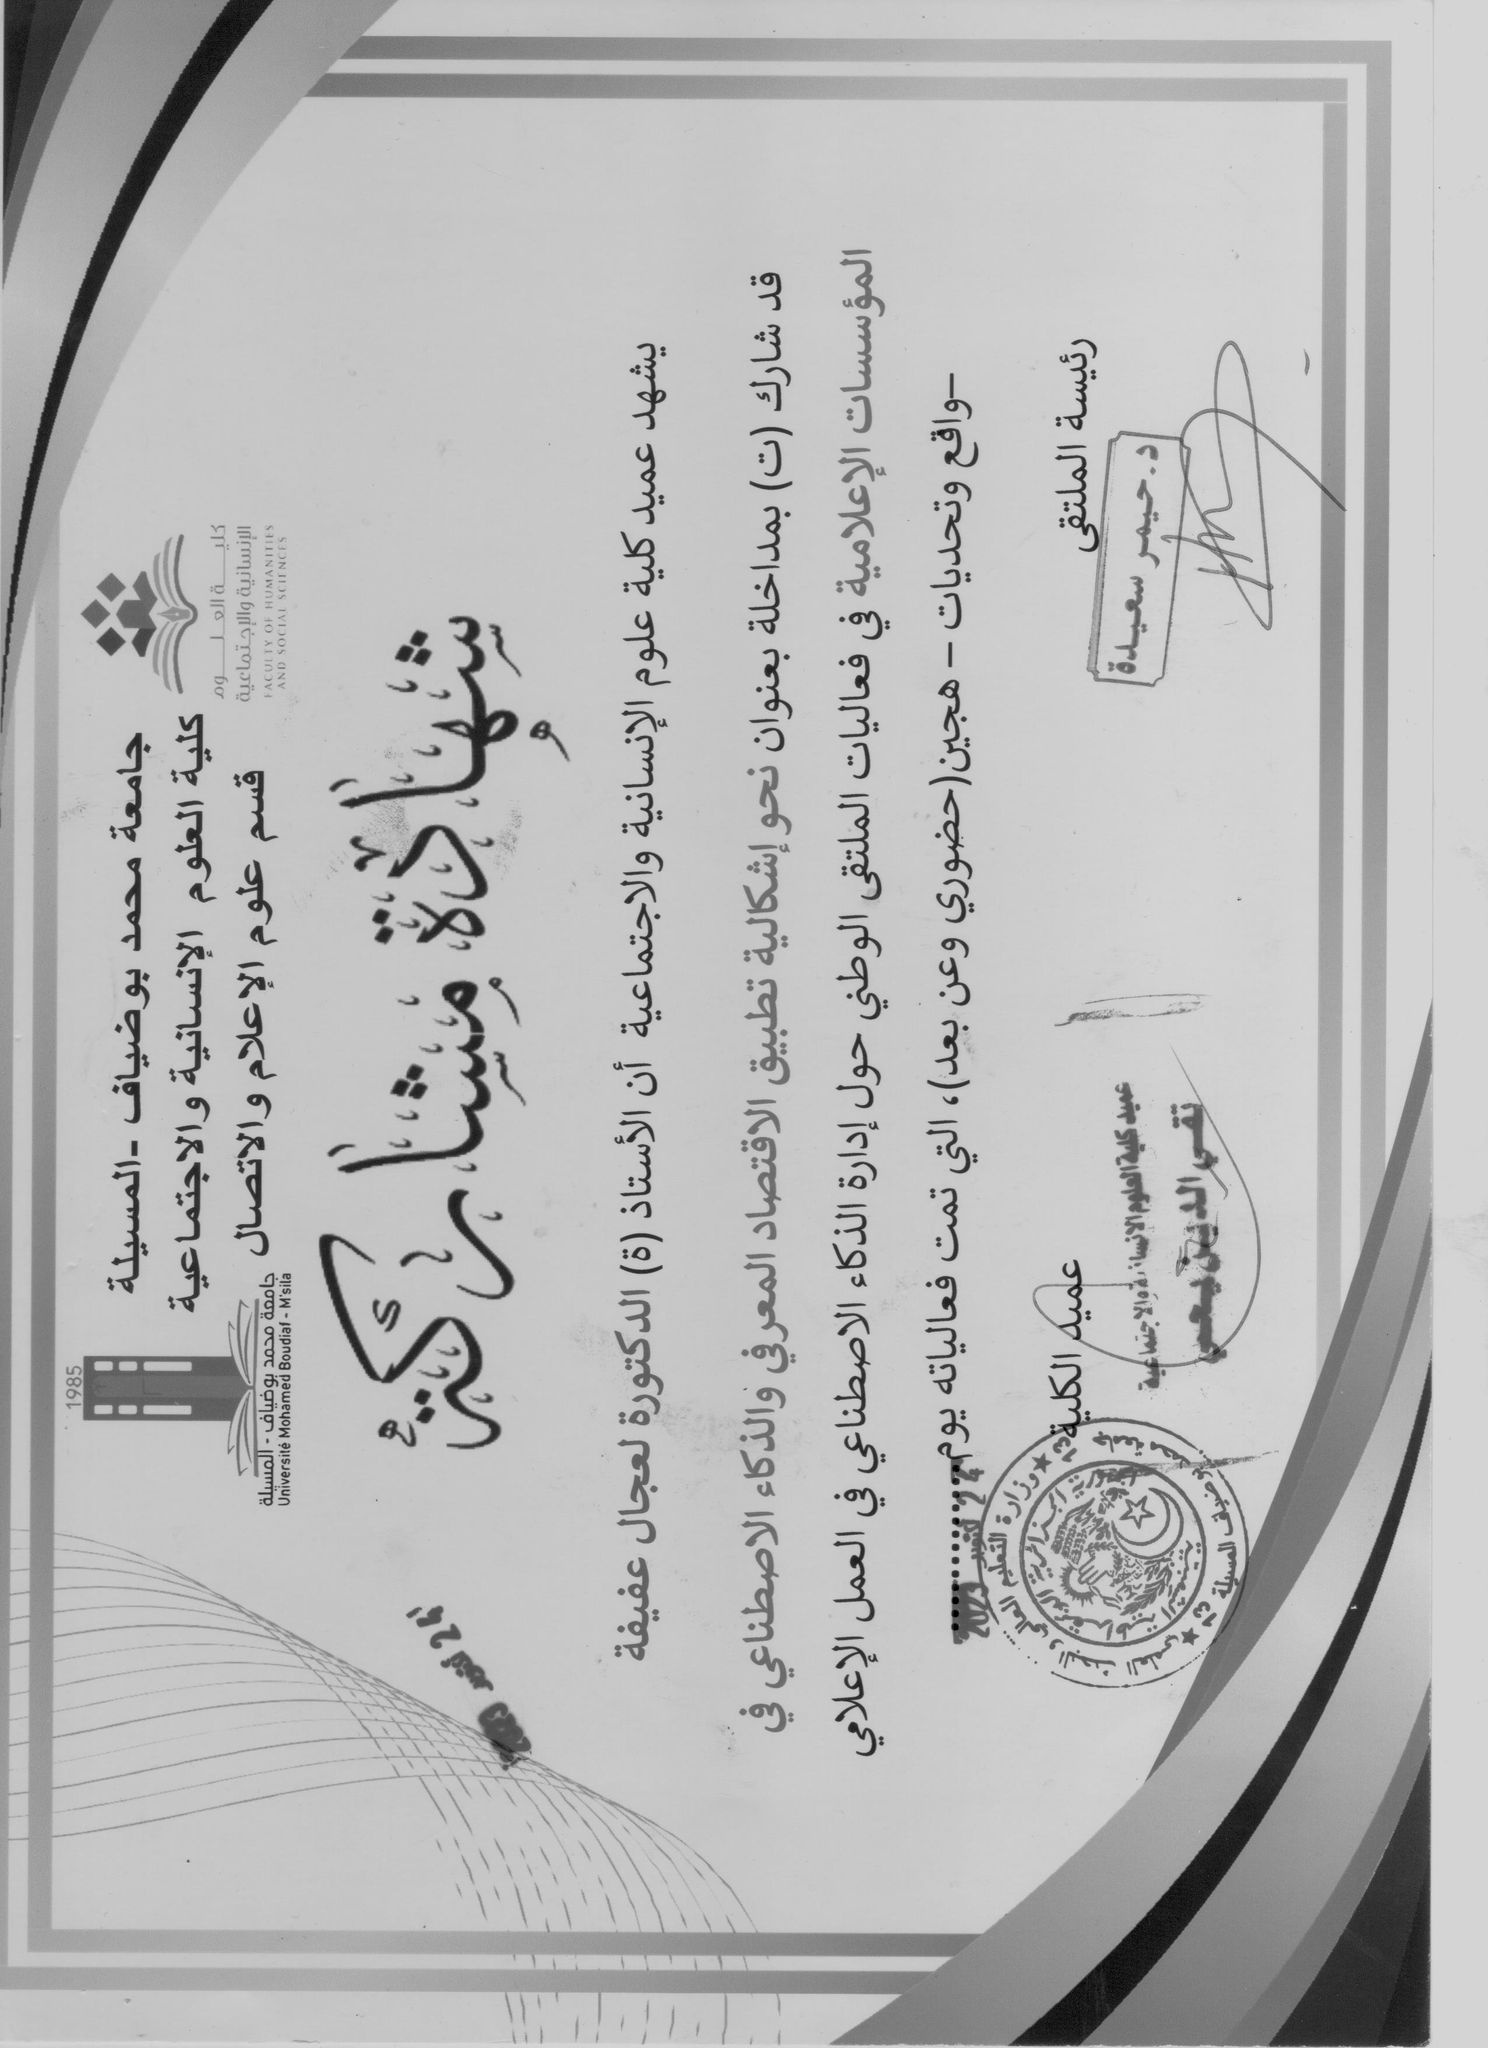 جامعة محمد بوضياف -المسيلة
كلية العلوم الإنسانية والاجتماعية
قسم علوم الإعلام والاتصال
كليـــــة العـلــــوم
الإنسانية والإجتماعية
FACULTY OF HUMANITIES
AND SOCIAL SCIENCES
1985
جامعة محمد بوضياف - المسيلة
Université Mohamed Boudiaf - M'sila
شهادة مشاركة
24 أكتوبر 2023
يشهد عميد كلية علوم الإنسانية والاجتماعية أن الأستاذ (ة) الدكتورة لعجال عفيفة
قد شارك (ت) بمداخلة بعنوان نحو إشكالية تطبيق الاقتصاد المعرفي والذكاء الاصطناعي في
المؤسسات الإعلامية في فعاليات الملتقى الوطني حول إدارة الذكاء الاصطناعي في العمل الإعلامي
–واقع وتحديات – هجين(حضوري وعن بعد)، التي تمت فعالياته يوم 24 أكتوبر 2023
رئيسة الملتقى
د. حيمر سعيدة
عميد الكلية
عميد كلية العلوم الإنسانية والاجتماعية
تقي الدين يحيى
وزارة التعليم العالي